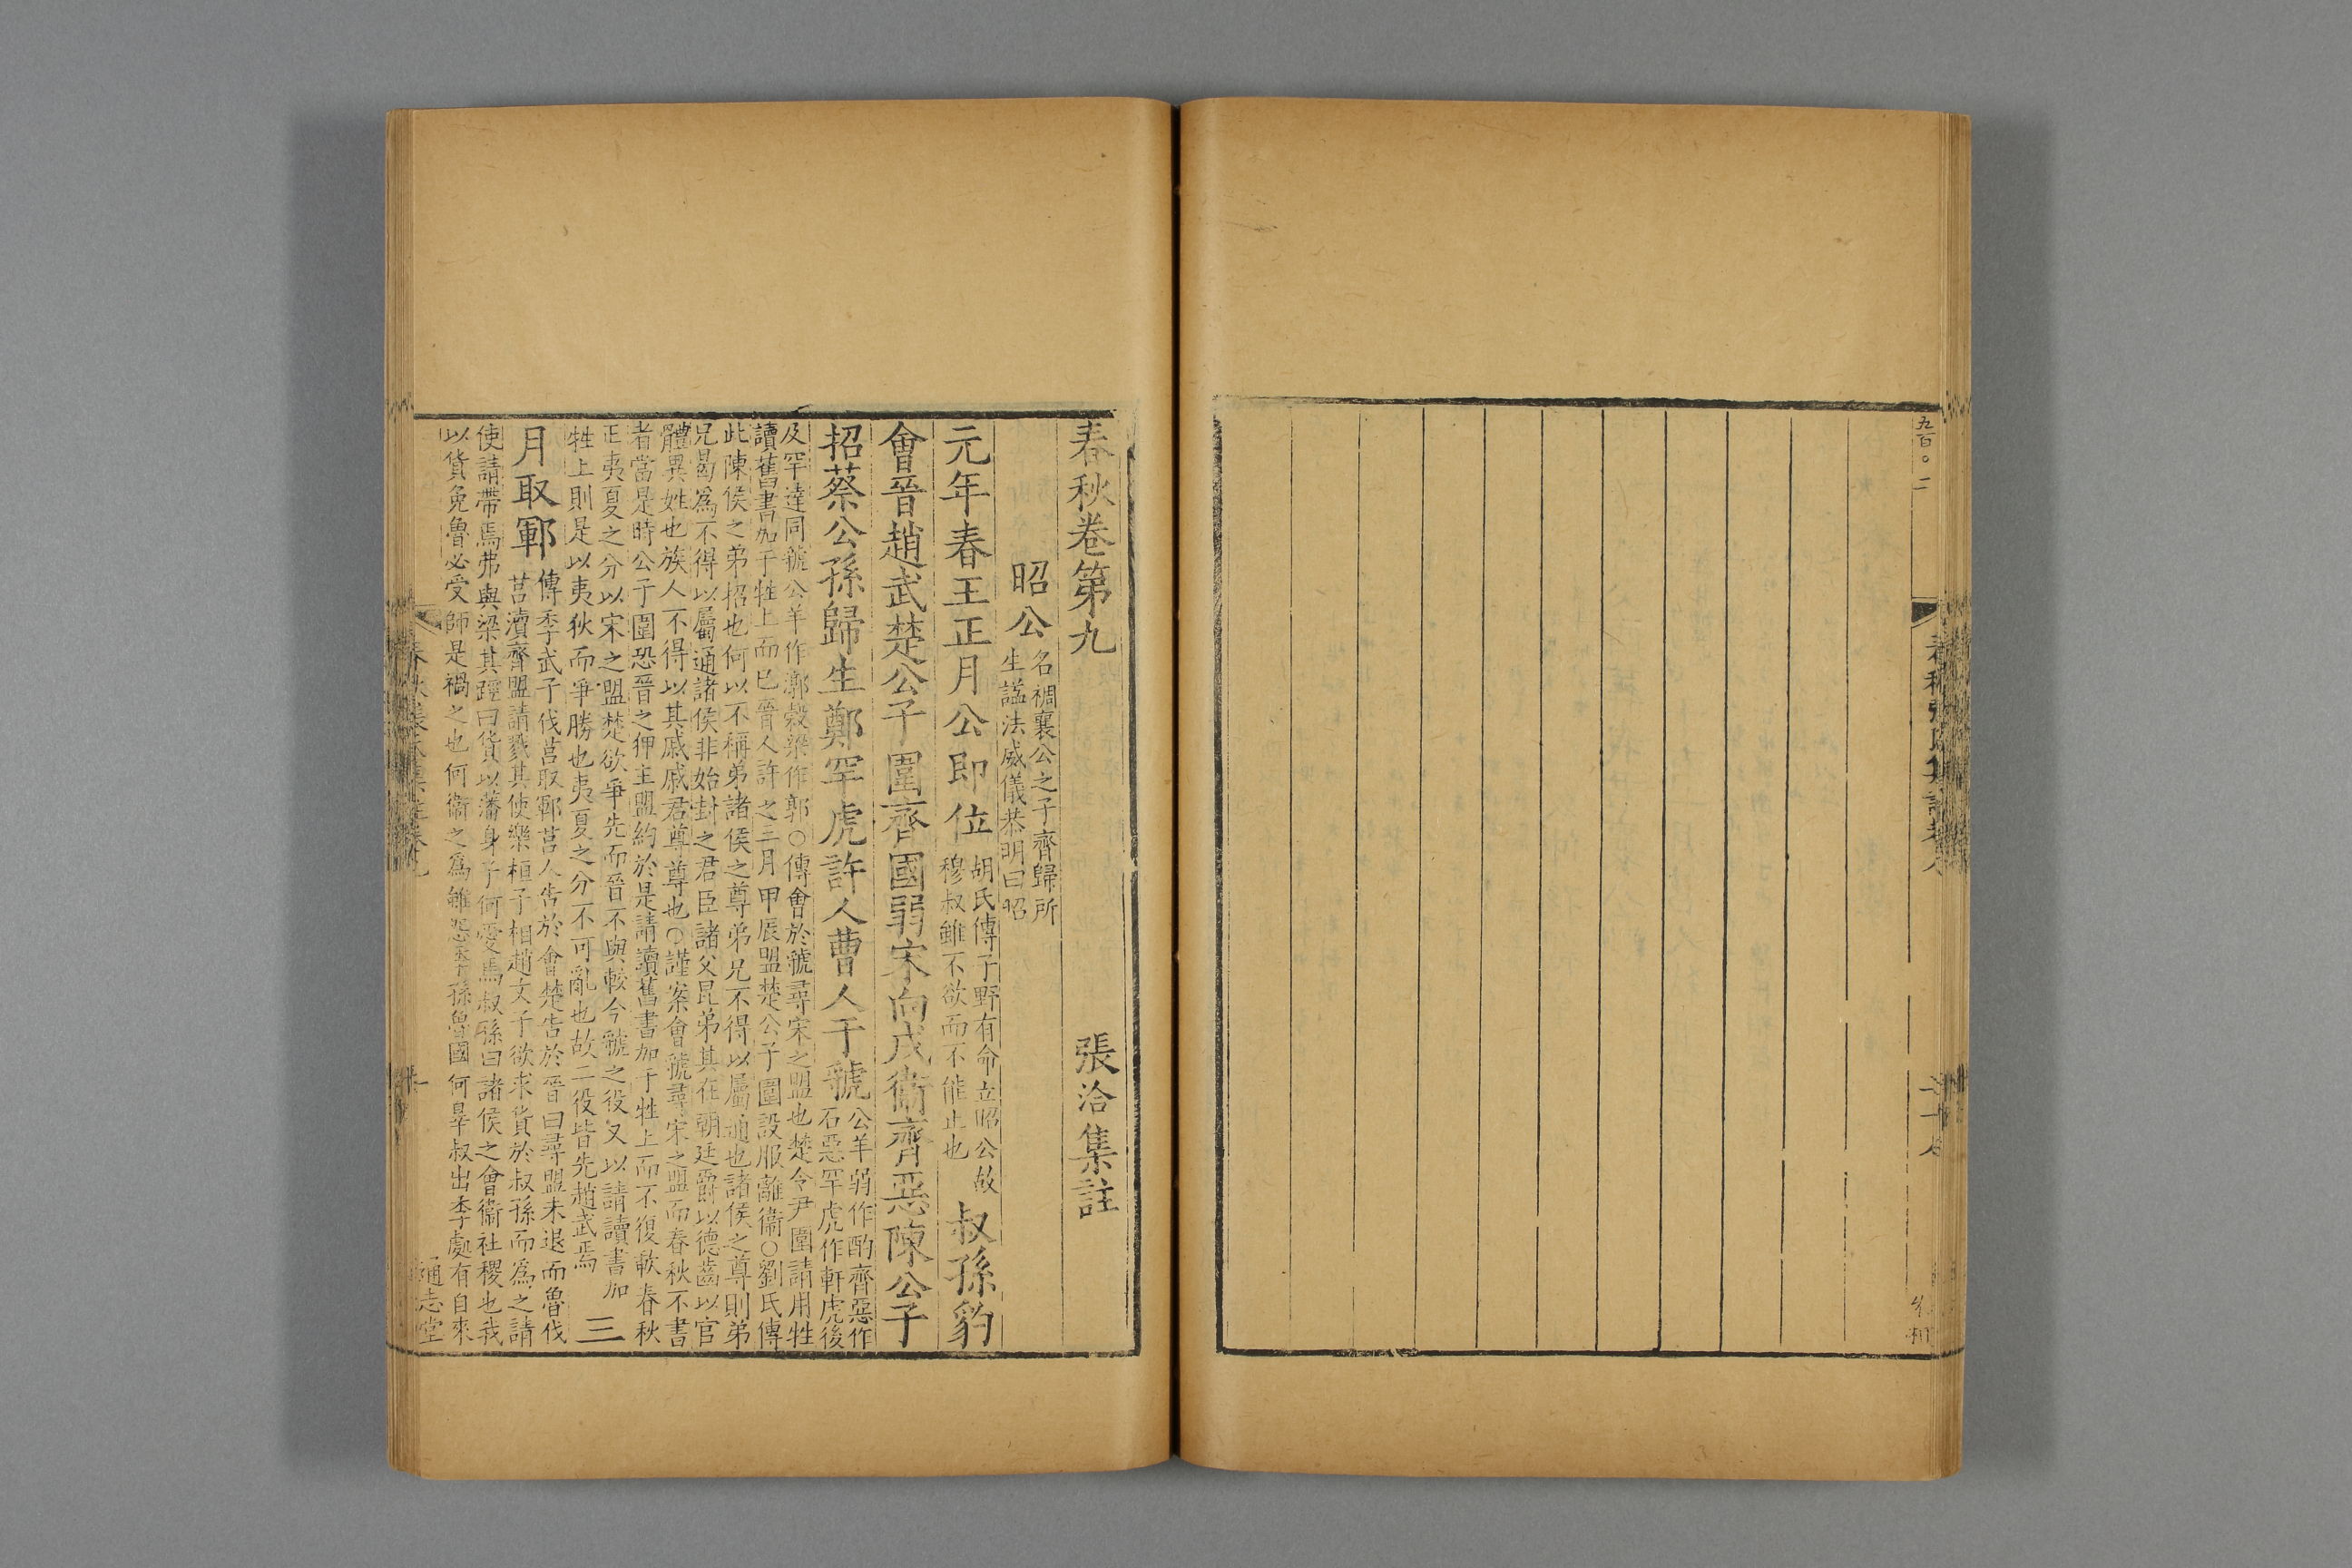 五百〇二
春秋張氏集註卷八
春秋卷第九
張洽集註
昭公
名裯襄公之子齊歸所
生諡法威儀恭明曰昭
元年春王正月公即位
胡氏傳子野有命立昭公故
穆叔雖不欲而不能止也
叔孫豹
會晉趙武楚公子圍齊國弱宋向戌衞齊惡陳公子
招蔡公孫歸生鄭罕虎許人曹人于虢
公羊弱作酌齊惡作
石惡罕虎作軒虎後
及罕達同虢公羊作漷穀梁作郭〇傳會於虢尋宋之盟也楚令尹圍請用牲
讀舊書加于牲上而已晉人許之三月甲辰盟楚公子圍設服離衞〇劉氏傳
此陳侯之弟招也何以不稱弟諸侯之尊弟兄不得以屬通也諸侯之尊則弟
兄曷爲不得以屬通諸侯非始封之君臣諸父昆弟其在朝廷爵以德齒以官
體異姓也族人不得以其戚戚君尊尊也〇謹案會虢尋宋之盟而春秋不書
者當是時公子圍恐晉之狎主盟約於是請讀舊書加于牲上而不復歃春秋
正夷夏之分以宋之盟楚欲爭先而晉不與較今虢之役又以請讀書加
牲上則是以夷狄而爭勝也夷夏之分不可亂也故二役皆先趙武焉
三
月取鄆
傳季武子伐莒取鄆莒人告於會楚告於晉曰尋盟未退而魯伐
莒瀆齊盟請戮其使樂桓子相趙文子欲求貨於叔孫而爲之請
使請帶焉弗與梁其踁曰貨以藩身子何愛焉叔孫曰諸侯之會衞社稷也我
以貨免魯必受師是禍之也何衞之爲雖怨季孫魯國何辠叔出季處有自來
春秋張氏集註卷九
一
通志堂